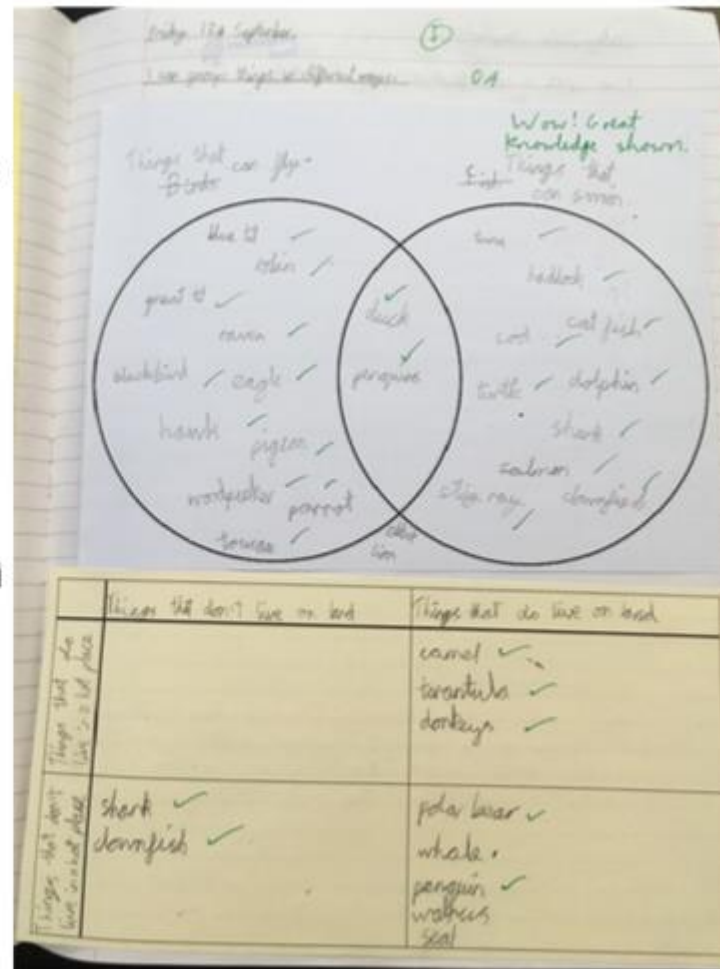 Friday 17th September
I can group things in different ways. OA
Wow! Great
knowledge shown.
Things that can fly.
Birds
Fish Things that
can swim.
blue tit
robin
great tit
raven
blackbird eagle
hawk
pigeon
parrot
duck
penguins
tuna
haddock
cod cat fish
turtle dolphin
shark
salmon
sting ray clownfish
lion
Things that don't live on land
Things that do live on land
Things that do
live in a hot place
camel
tarantula
donkeys
Things that don't
live in a hot place
shark
clownfish
polar bear
whale
penguin
walrus
seal